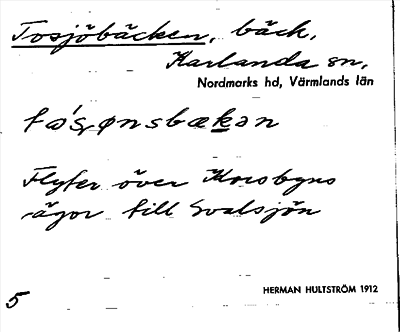 Tosjöbäcken, bäck,
Karlanda sn,
Nordmarks hd, Värmlands län
to's,ønsbækən
Flyter över Korsbyns
ägor till Svalsjön
HERMAN HULTSTRÖM 1912
5